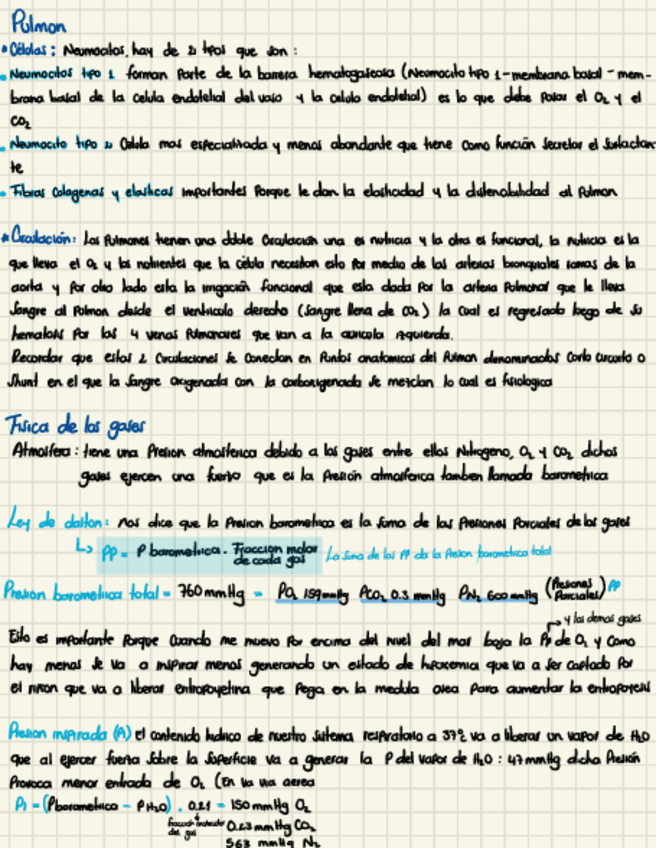 Pulmon
• Células: Neumocitos, hay de 2 tipos que son:
• Neumocitos tipo 1 forman parte de la barrera hematogaseosa (Neumocito tipo 1 - membrana basal - mem-
brana basal de la celula endotelial del vaso y la celula endotelial) es lo que debe pasar el O₂ y el
CO₂
• Neumocito tipo 2 Celula mas especializada y menos abundante que tiene como función secretar el surfactan-
te
• Fibras colagenas y elasticas importantes porque le dan la elasticidad y la distensibilidad al pulmon
* Circulación: Los Pulmones tienen una doble circulación una es nutricia y la otra es funcional, la nutricia es la
que lleva el O₂ y los nutrientes que la célula necesitan esto por medio de las arterias bronquiales ramas de la
aorta y por otro lado esta la irrigación funcional que esta dada por la arteria pulmonar que le lleva
sangre al Pulmon desde el ventriculo derecho (sangre llena de CO₂) la cual es regresada luego de su
hematosis por las 4 venas pulmonares que van a la auricula izquierda.
Recordar que estas 2 circulaciones se conectan en puntos anatomicos del pulmon denominados corto circuito o
shunt en el que la sangre oxigenada con la carboxigenada se mezclan lo cual es fisiologico
Fisica de los gases
Atmosfera: tiene una Presion atmosferica debido a los gases entre ellos Nitrogeno, O₂ y CO₂ dichos
gases ejercen una fuerza que es la Presión atmosferica tambien llamada barometrica
Ley de dalton: nos dice que la Presion barometrica es la suma de las Presiones Parciales de los gases
↳ PP = P barometrica . Fraccion molar de cada gas La suma de las PP da la Presion barometrica total
Presion barometrica total = 760 mmHg = PO₂ 159mmHg PCO₂ 0.3 mmHg PN₂ 600 mmHg (Presiones Parciales) PP
↱ y los demas gases
Esto es importante porque cuando me muevo por encima del nivel del mar baja la Pp de O₂ y como
hay menos se va a inspirar menos generando un estado de hipoxemia que va a ser captado por
el riñon que va a liberar eritropoyetina que pega en la medula osea para aumentar la eritropoyesis
Presion inspirada (PI) el contenido hidrico de nuestro sistema respiratorio a 37° va a liberar un vapor de H₂O
que al ejercer fuerza sobre la superficie va a generar la P del vapor de H₂O: 47 mmHg dicha Presión
Provoca menor entrada de O₂ (En la via aerea
PI = (Pbarometrica - PH₂O) . 0.21 = 150 mmHg O₂
0.23 mmHg CO₂
563 mmHg N₂